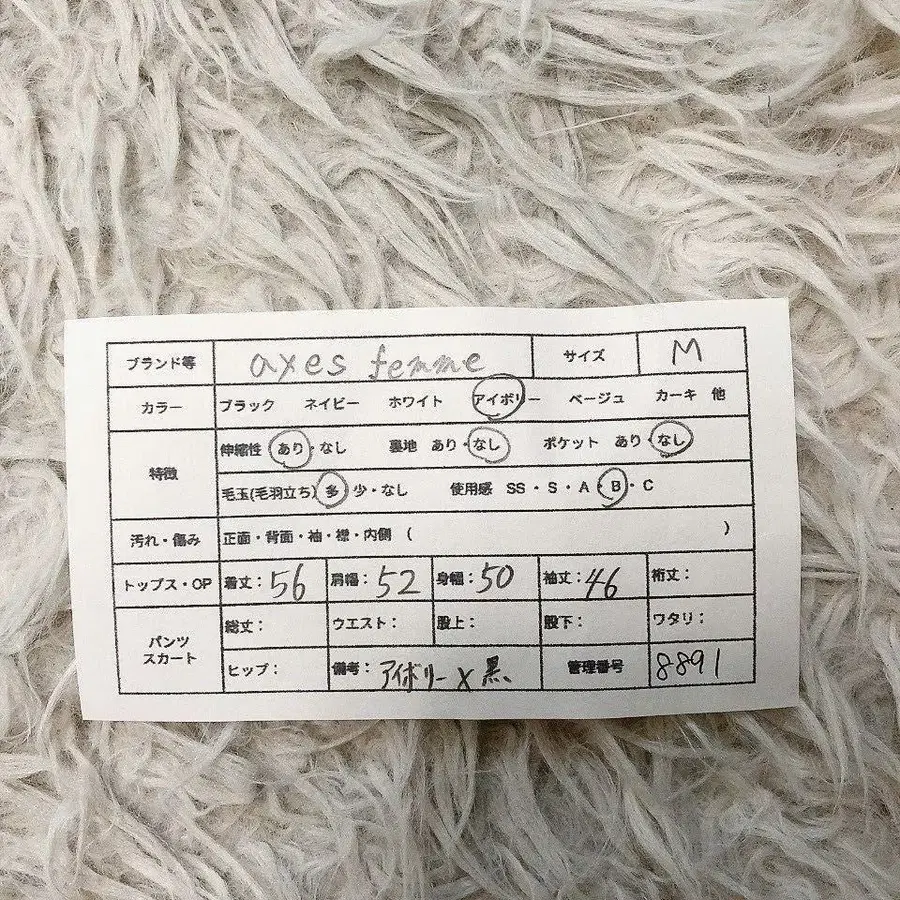 ブランド等 axes femme サイズ M
カラー ブラック ネイビー ホワイト アイボリー ベージュ カーキ 他
特徴 伸縮性 あり・なし 裏地 あり・なし ポケット あり・なし
毛玉(毛羽立ち) 多・少・なし 使用感 SS・S・A・B・C
汚れ・傷み 正面・背面・袖・襟・内側 ( )
トップス・OP 着丈:56 肩幅:52 身幅:50 袖丈:46 裄丈:
パンツ スカート 総丈: ウエスト: 股上: 股下: ワタリ:
ヒップ: 備考: アイボリー×黒、 管理番号 8891